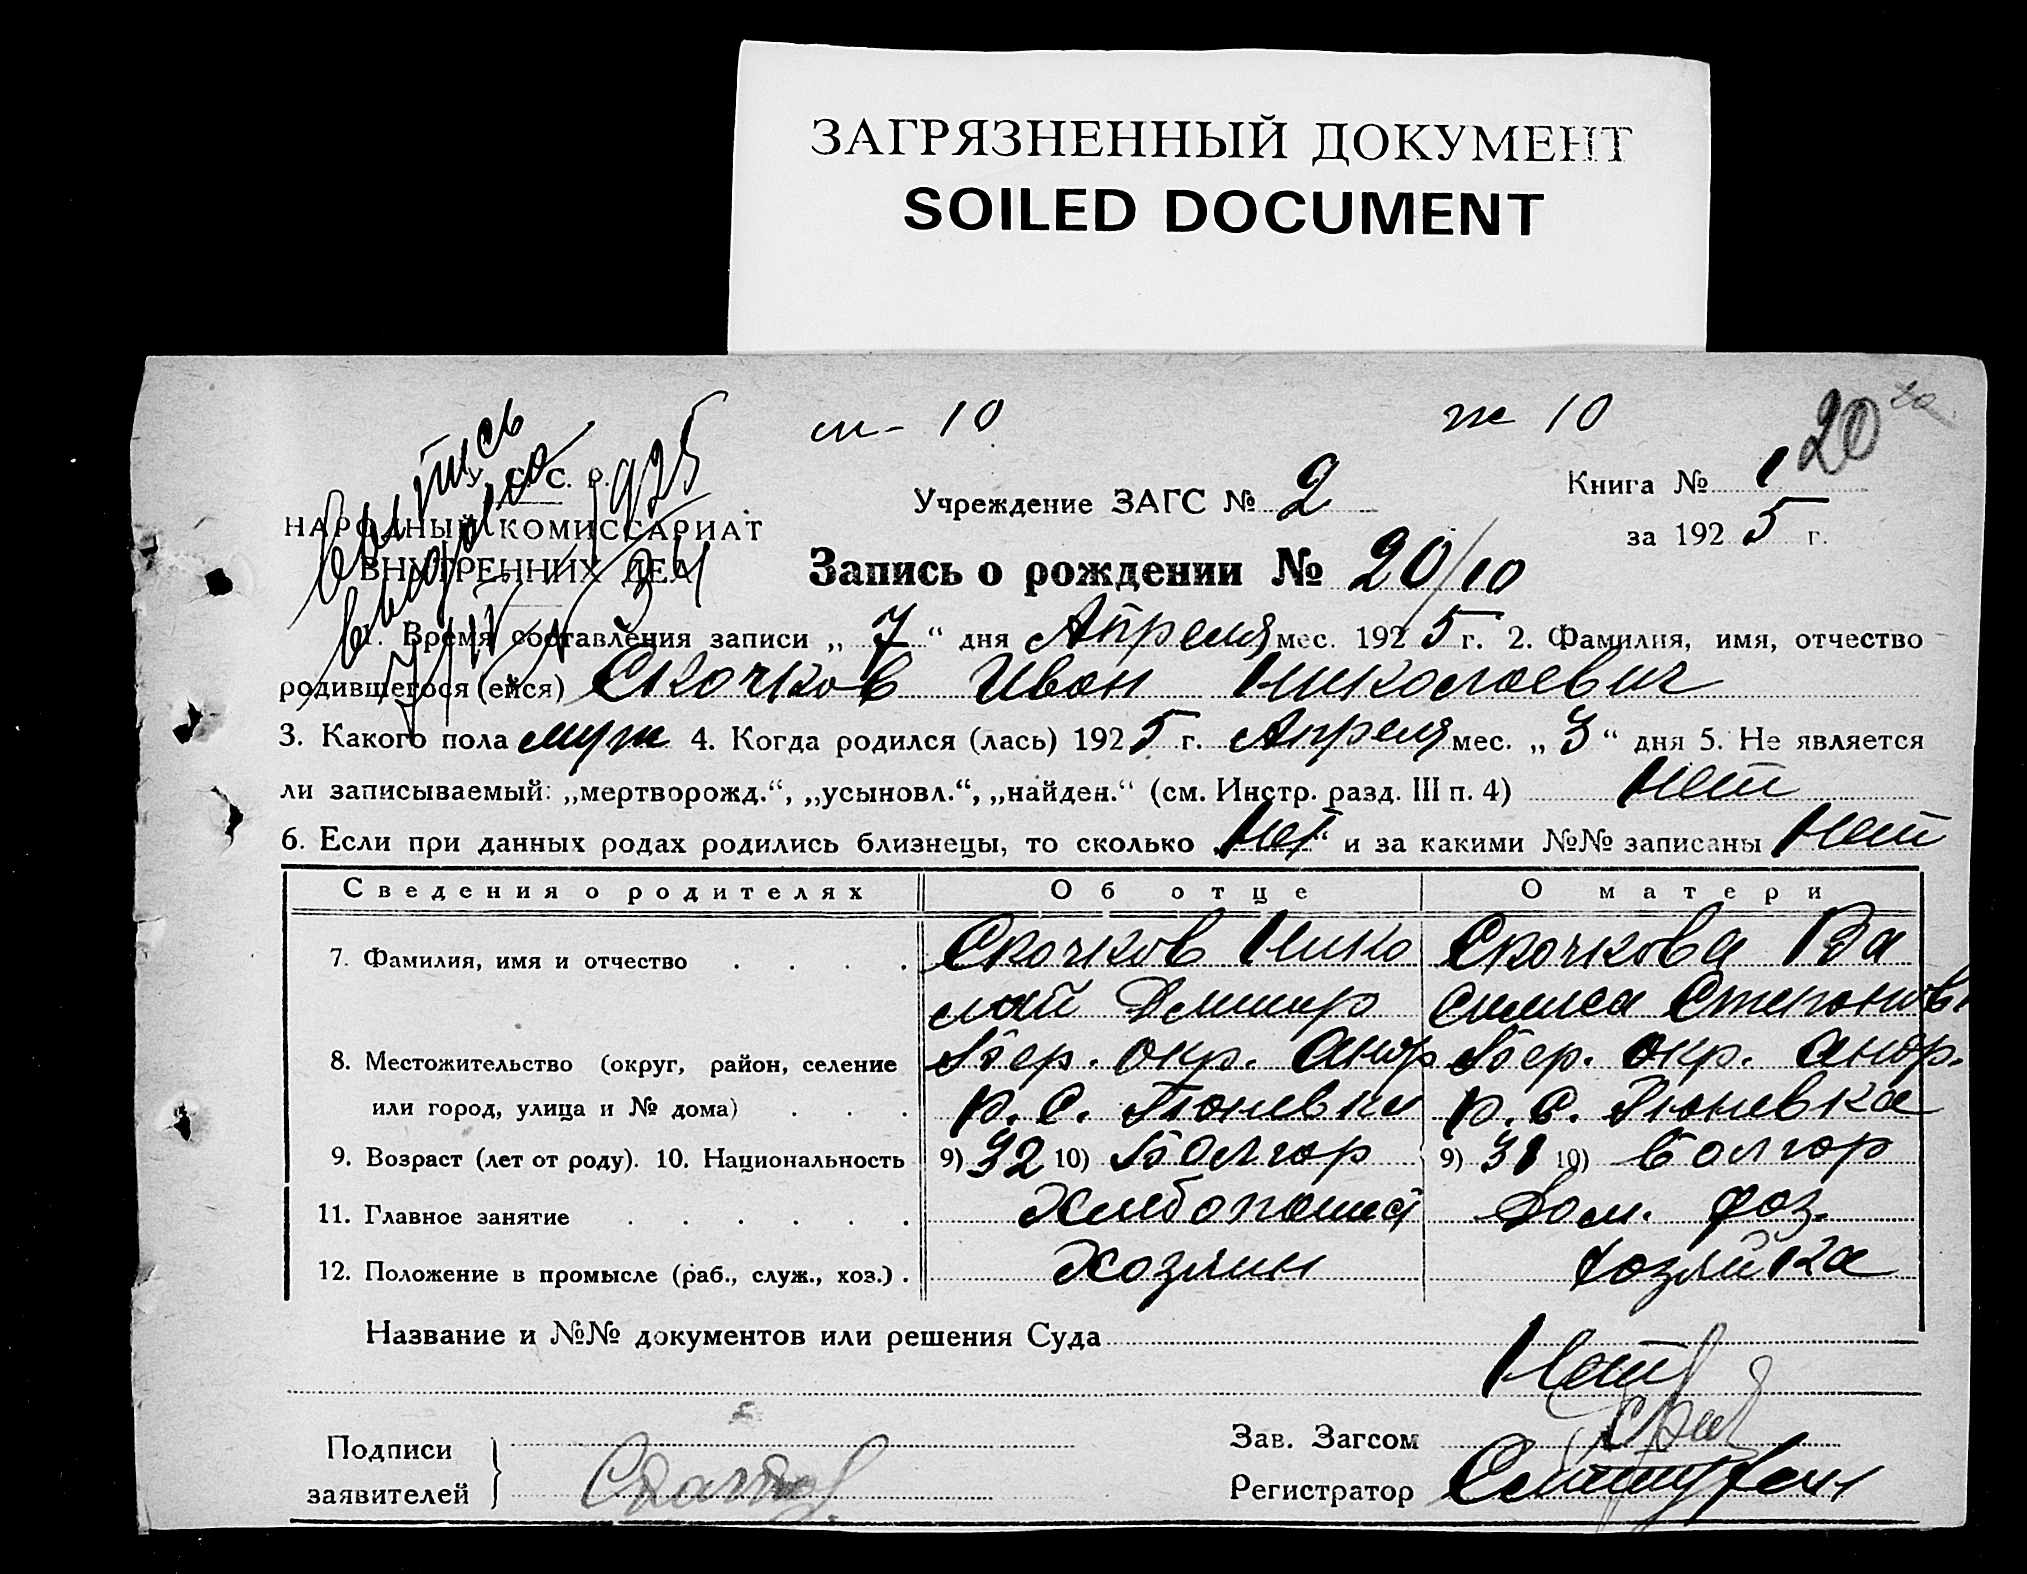 ЗАГРЯЗНЕННЫЙ ДОКУМЕНТ
SOILED DOCUMENT
м - 10 ж 10 20
У. С. С. Р.
Выпись выдана 1925
НАРОДНЫЙ КОМИССАРИАТ
ВНУТРЕННИХ ДЕЛ
Учреждение ЗАГС № 2
Книга № 1
за 1925 г.
Запись о рождении № 20/10
1. Время составления записи „7“ дня Апреля мес. 1925 г. 2. Фамилия, имя, отчество
родившегося (ейся) Скочков Иван Николаевич
3. Какого пола муж 4. Когда родился (лась) 1925 г. Апреля мес. „3“ дня 5. Не является
ли записываемый: „мертворожд.“, „усыновл.“, „найден.“ (см. Инстр. разд. III п. 4) Нет
6. Если при данных родах родились близнецы, то сколько „Нет“ и за какими №№ записаны Нет
Сведения о родителях Об отце О матери
7. Фамилия, имя и отчество Скочков Нико Скочкова Ва
лай Димитр силиса Степановн
8. Местожительство (округ, район, селение Бер. окр. Андр Бер. окр. Андр.
или город, улица и № дома) р. с. Гюневки р. с. Гюневка
9. Возраст (лет от роду). 10. Национальность 9) 32 10) Болгар 9) 31 10) болгар
11. Главное занятие Хлебопашец Дом. хоз.
12. Положение в промысле (раб., служ., хоз.) Хозяин хозяйка
Название и №№ документов или решения Суда
Нет
Подписи
заявителей
Зав. Загсом
Регистратор